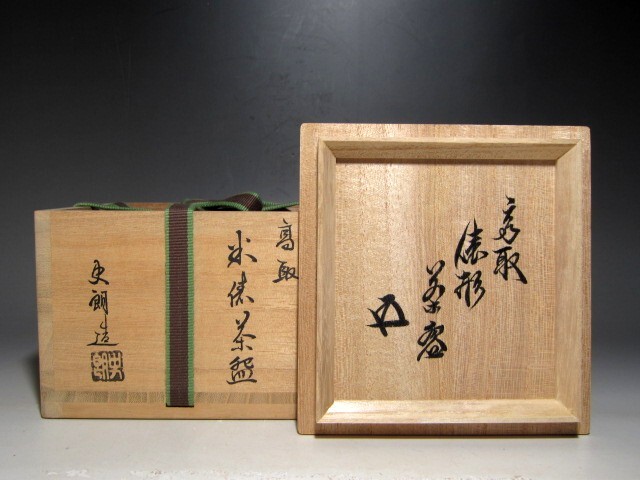 高取
俵形
茶壺
高取
米俵茶盌
史朗造